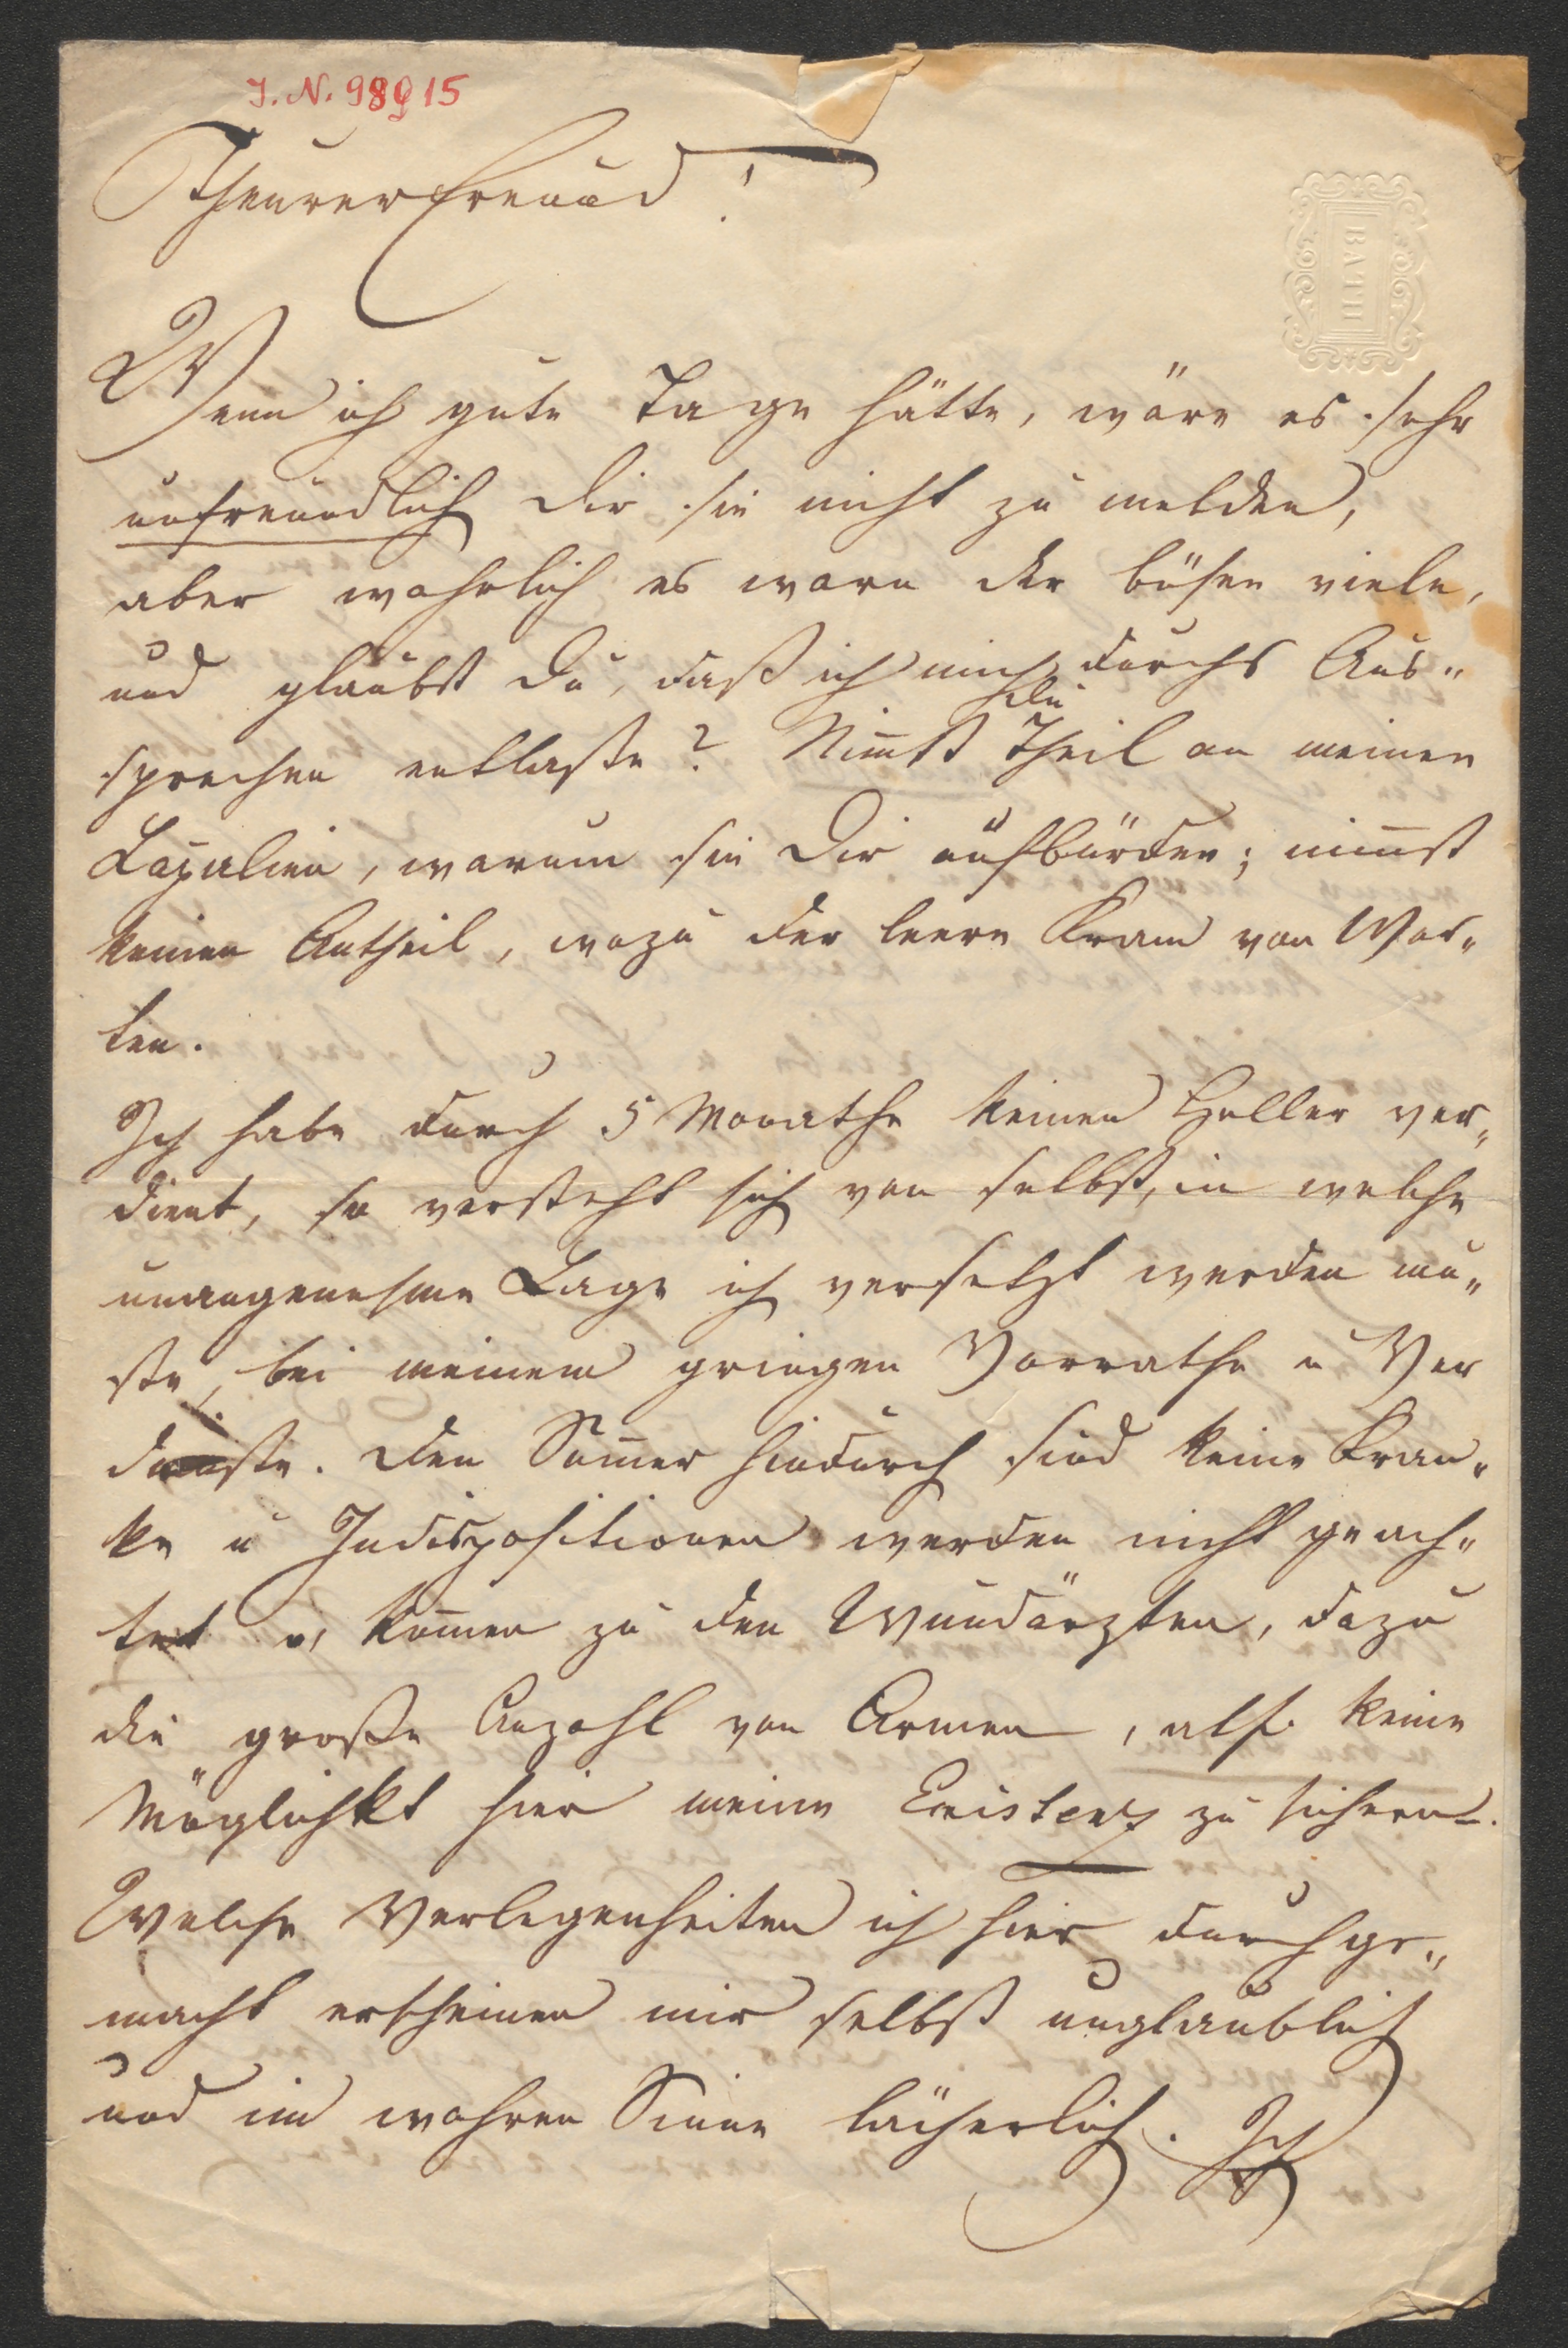 J. N. 98915
Theurer Freund!
BATH
Wenn ich gute Tage hätte, wäre es sehr
unfreundlich Dir sie nicht zu melden,
aber wahrlich es waren der bösen viele,
und glaubst Du, daß ich mich durchs Aus„
du
sprechen entlaste? Nim̅st Theil an meinen
Lapalien, warum sie Dir aufbürden; nim̅st
keinen Antheil, wozu der leere Kram von Wor„
ten.
Ich habe durch 5 Monathe keinen Heller ver„
dient, so versteht sich von selbst, in welche
unangenehme Lage ich versetzt werden mu„
ste, bei meinem gringen Vorrathe u Ver
dienste. Den Som̅er hindurch sind keine Kran„
ke u Indispositionen werden nicht geach„
tet u, kom̅en zu den Wundärzten, dazu
die große Anzahl von Armen, also keine
Möglichkt hier meine Existenz zu sichern.
Welche Verlegenheiten ich hier durchge„
macht erscheinen mir selbst unglaublich
und im wahren Sinne lächerlich. Ich